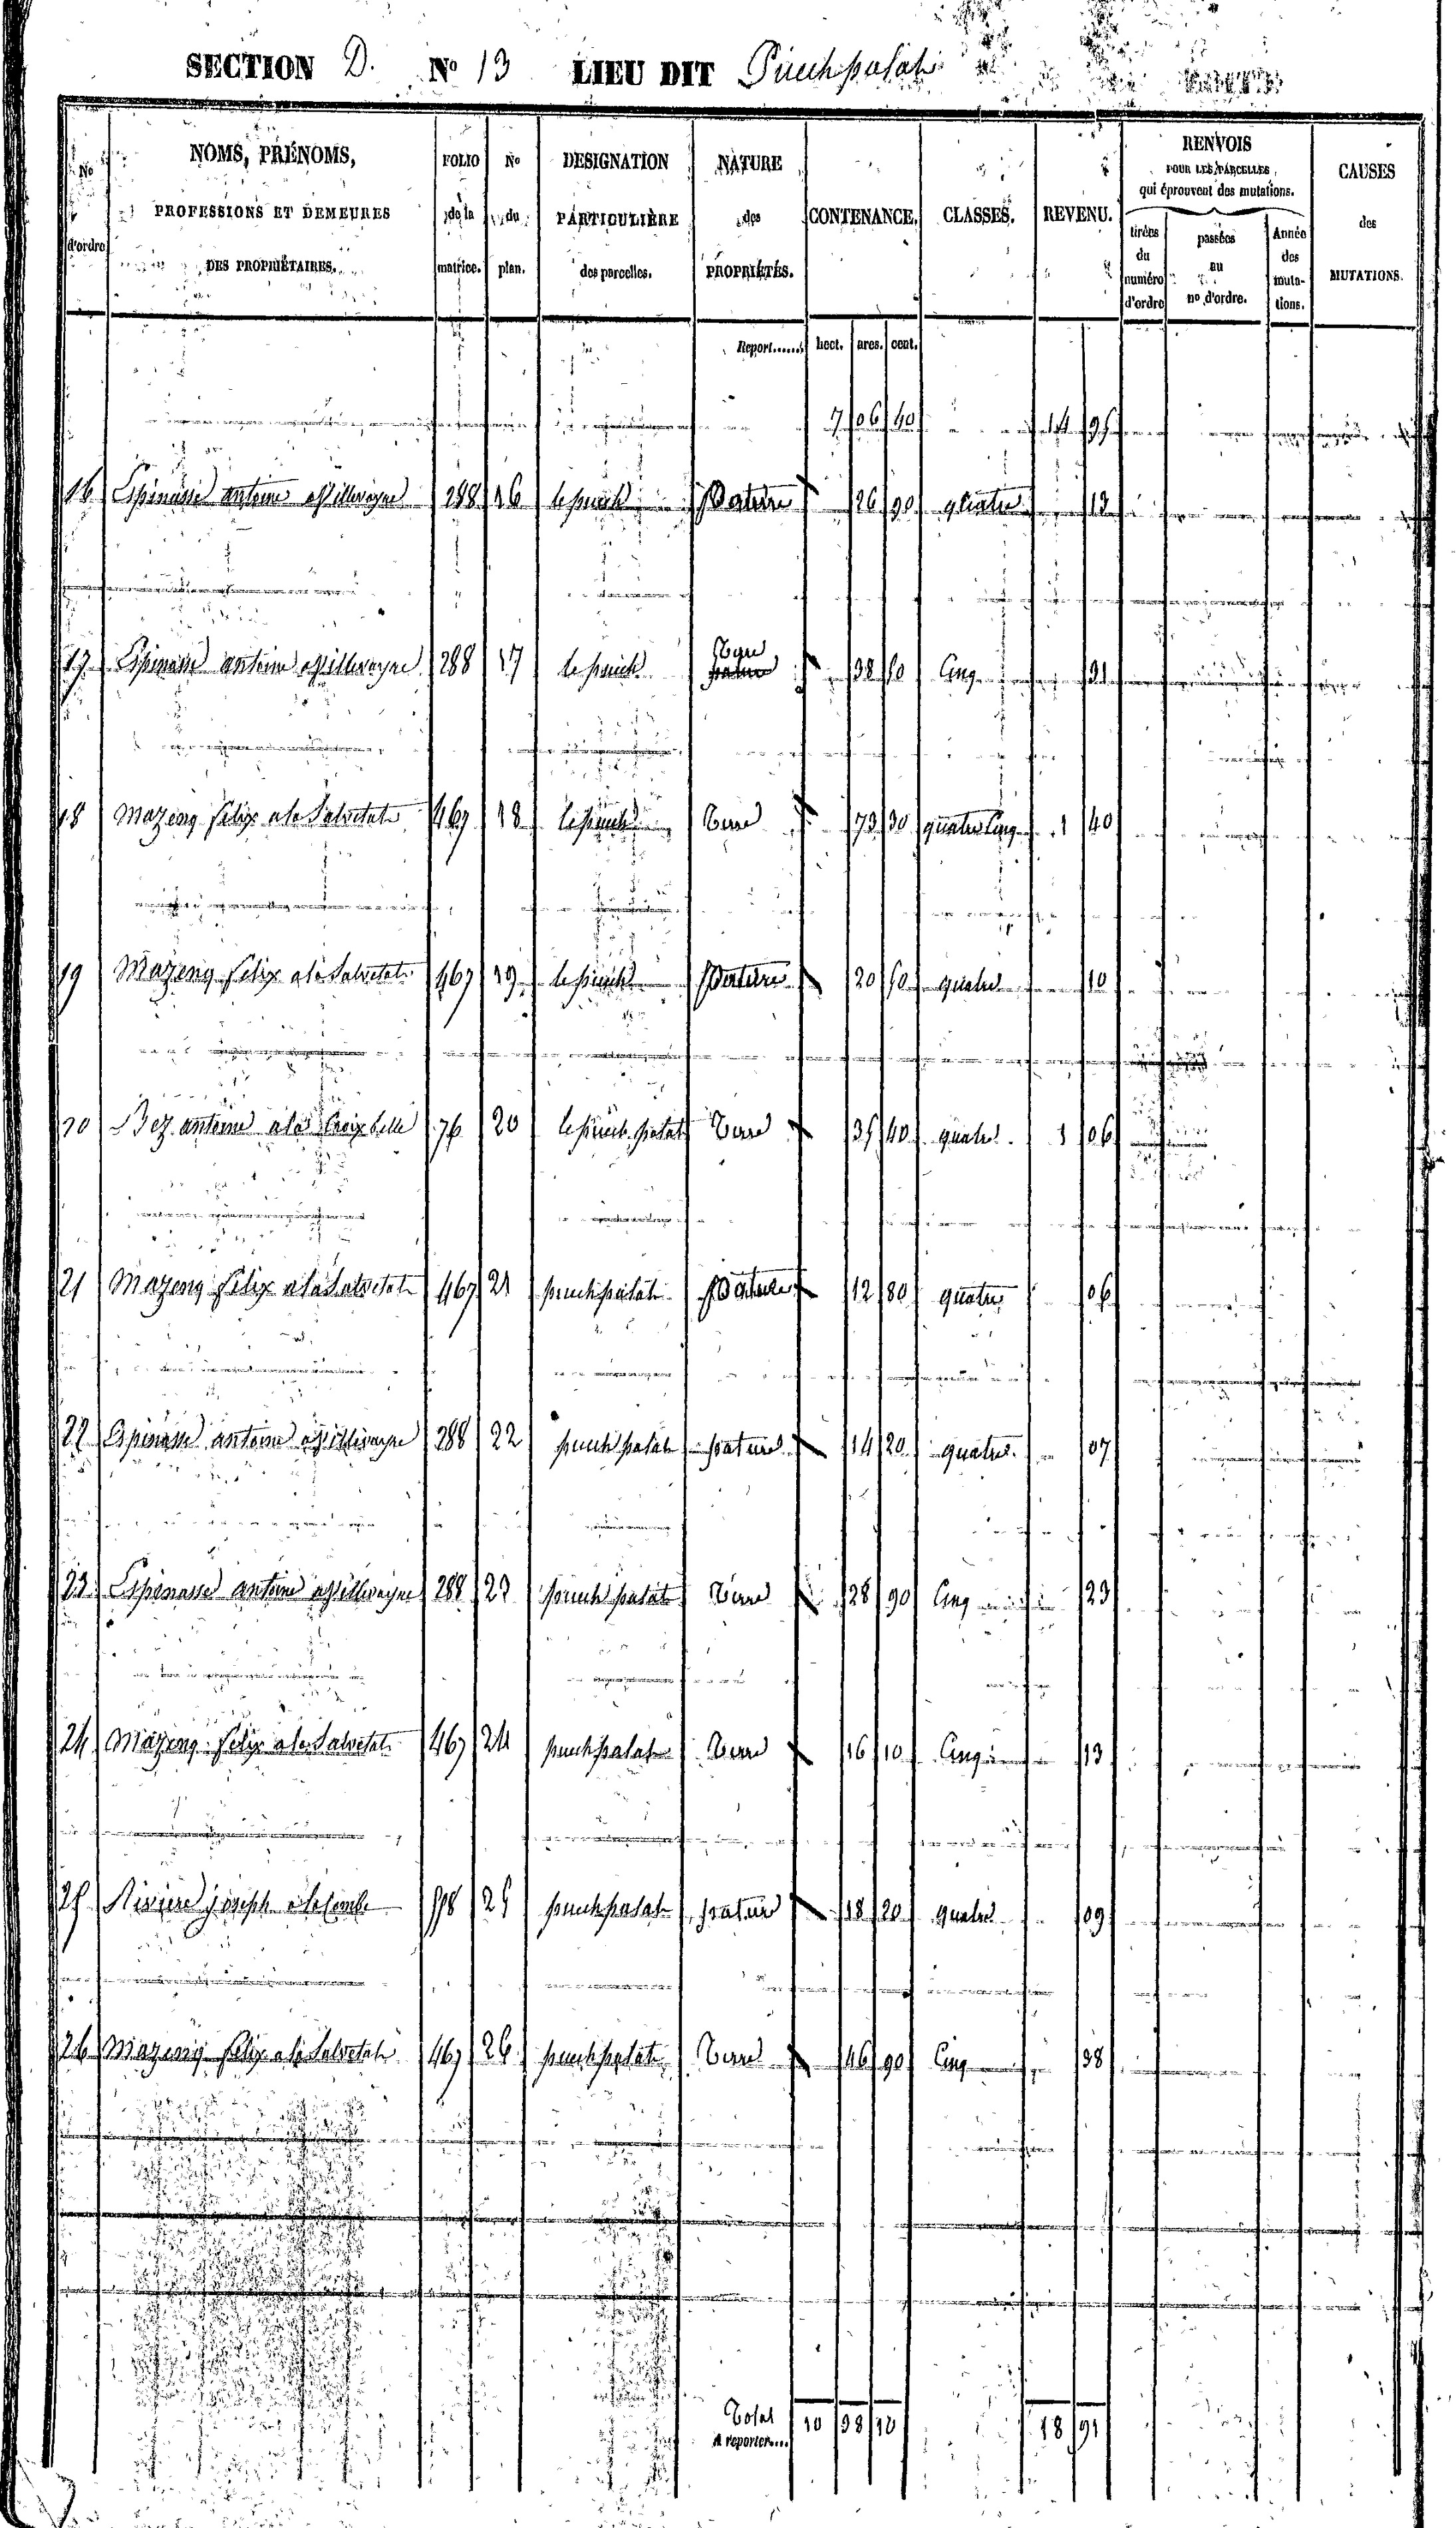 SECTION D. No 13 LIEU DIT Puechpalat
No d'ordre
NOMS, PRÉNOMS, PROFESSIONS ET DEMEURES DES PROPRIÉTAIRES.
FOLIO de la matrice.
No du plan.
DESIGNATION PARTICULIÈRE des parcelles.
NATURE des PROPRIÉTÉS.
CONTENANCE.
CLASSES.
REVENU.
RENVOIS POUR LES PARCELLES qui éprouvent des mutations.
tirées du numéro d'ordre
passées au no d'ordre.
Année des mutations.
CAUSES des MUTATIONS.
Report...... hect. ares. cent.
7 06 40 14 96
16 Espinasse antoine a 288 16 le puech pature 26 90 quatre 13
17 Espinasse antoine a 288 17 le puech Terre 38 60 Cinq 31
18 Mazenq felix a la Salvetat 467 18 le puech Terre 73 30 quatre Cinq 1 40
19 Mazenq felix a la Salvetat 467 19 le puech pature 20 60 quatre 10
20 Bez antoine a la Croix belle 76 20 le puech palat Terre 35 40 quatre 1 06
21 Mazenq felix a la Salvetat 467 21 puechpalat pature 12 80 quatre 06
22 Espinasse antoine a 288 22 puech palat pature 14 20 quatre 07
23 Espinasse antoine a 288 23 puech palat Terre 28 90 Cinq 23
24 Mazenq felix a la Salvetat 467 24 puechpalat Terre 16 10 Cinq 13
25 Riviere joseph a la Combe 25 puechpalat pature 18 20 quatre 09
26 Mazenq felix a la Salvetat 467 26 puechpalat Terre 46 90 Cinq 38
Total
A reporter.... 10 38 10 18 91